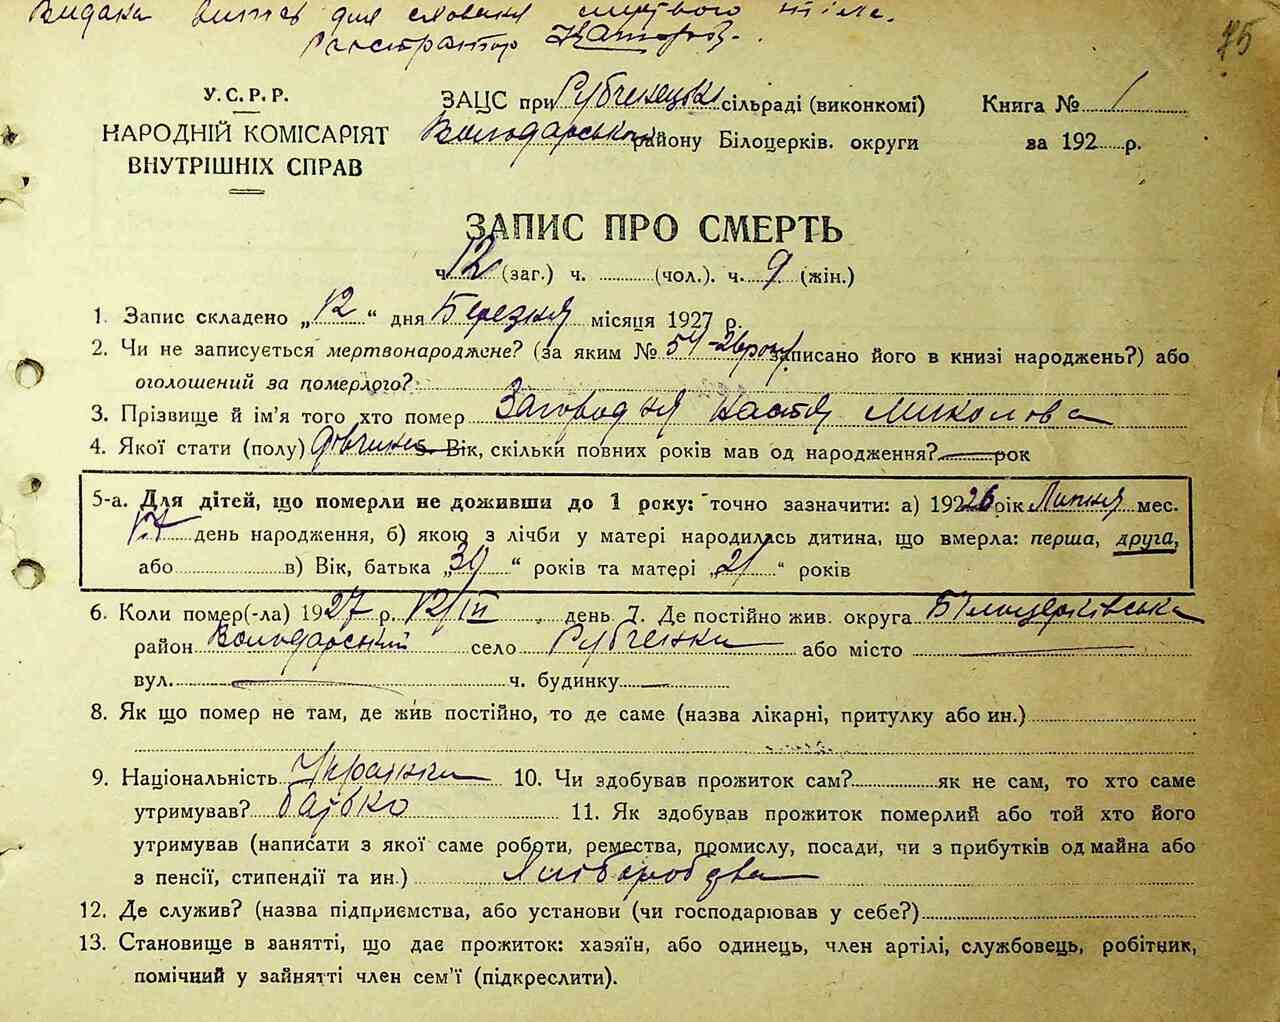 Видана витяг для сховання мертвого тіла.
Реєстратор
75
У.С.Р.Р.
НАРОДНІЙ КОМІСАРІЯТ
ВНУТРІШНІХ СПРАВ
ЗАЦС при Рубченецькі сільраді (виконкомі)
Володарського району Білоцерків. округи
Книга № 1
за 192 р.
ЗАПИС ПРО СМЕРТЬ
ч. 12 (заг.) ч. (чол.). ч. 9 (жін.)
1. Запис складено „12" дня Березня місяця 1927 р.
2. Чи не записується мертвонароджене? (за яким № 54-26 року записано його в книзі народжень?) або
оголошений за померлого?
3. Прізвище й ім'я того хто помер Загородня Настя Миколова
4. Якої стати (полу) Дівчина 5 Вік, скільки повних років мав од народження? — рок
5-а. Для дітей, що померли не доживши до 1 року: точно зазначити: а) 19226 рік Липня мес.
день народження, б) якою з лічби у матері народилась дитина, що вмерла: перша, друга,
або в) Вік, батька „39" років та матері „21" років
6. Коли помер(-ла) 1927 р. 12/III день 7. Де постійно жив. округа Білоцерківська
район Володарський село Рубченки або місто —
вул. — ч. будинку —
8. Як що помер не там, де жив постійно, то де саме (назва лікарні, притулку або ин.)
9. Національність Українка 10. Чи здобував прожиток сам? як не сам, то хто саме
утримував? батько 11. Як здобував прожиток померлий або той хто його
утримував (написати з якої саме роботи, ремества, промислу, посади, чи з прибутків од майна або
з пенсії, стипендії та ин.) Хліборобства
12. Де служив? (назва підприємства, або установи (чи господарював у себе?)
13. Становище в занятті, що дає прожиток: хазяїн, або одинець, член артілі, службовець, робітник,
помічний у зайнятті член сем'ї (підкреслити).